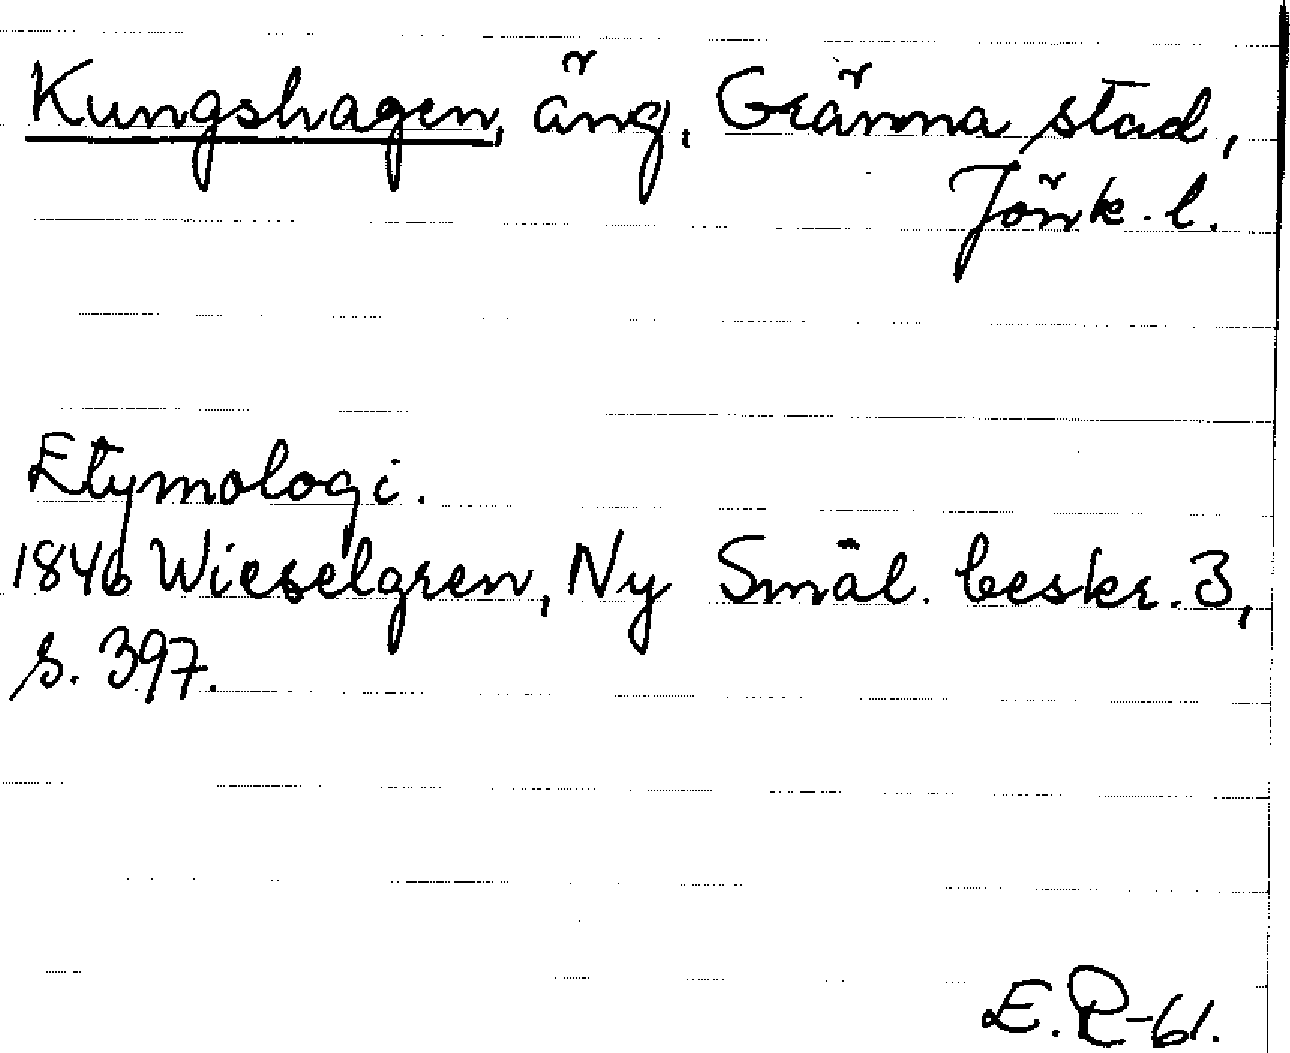 Kungshagen, äng, Gränna stad,
Jönk. l.
Etymologi.
1846 Wieselgren, Ny Smål. beskr. 3,
s. 397.
E. R-61.